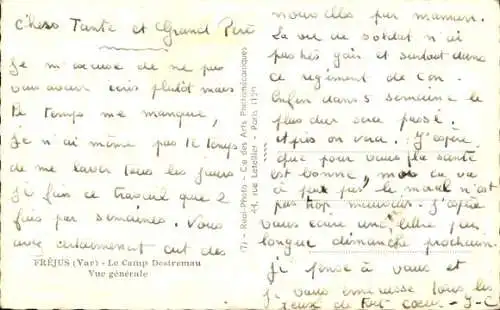 Chers Tante et Grand Père
Je m'excuse de ne pas
vous avoir écris plutôt mais
le temps me manque,
je n'ai même pas le temps
de me laver tous les jours
je fais ce travail que 2
fois par semaines. Vous
avez certainement eut des
FRÉJUS (Var) - Le Camp Destremau
Vue générale
(7) - Real-Photo - Cie des Arts Photomécaniques
44, rue Letellier - Paris (15e)
nouvelles par maman.
La vie de soldat n'ai
pas très gai et surtout dans
ce régiment de con.
Enfin dans 5 semaine le
plus dur sera passé.
Après on vera. J'espère
que pour vous la santé
est bonne, moi ça va
à peu pas le moral n'est
pas trop mauvais. J'espère
vous écrire une lettre plus
longue dimanche prochain.
Je pense à vous et
je vous embrasse tous les
deux de tout coeur - J-C